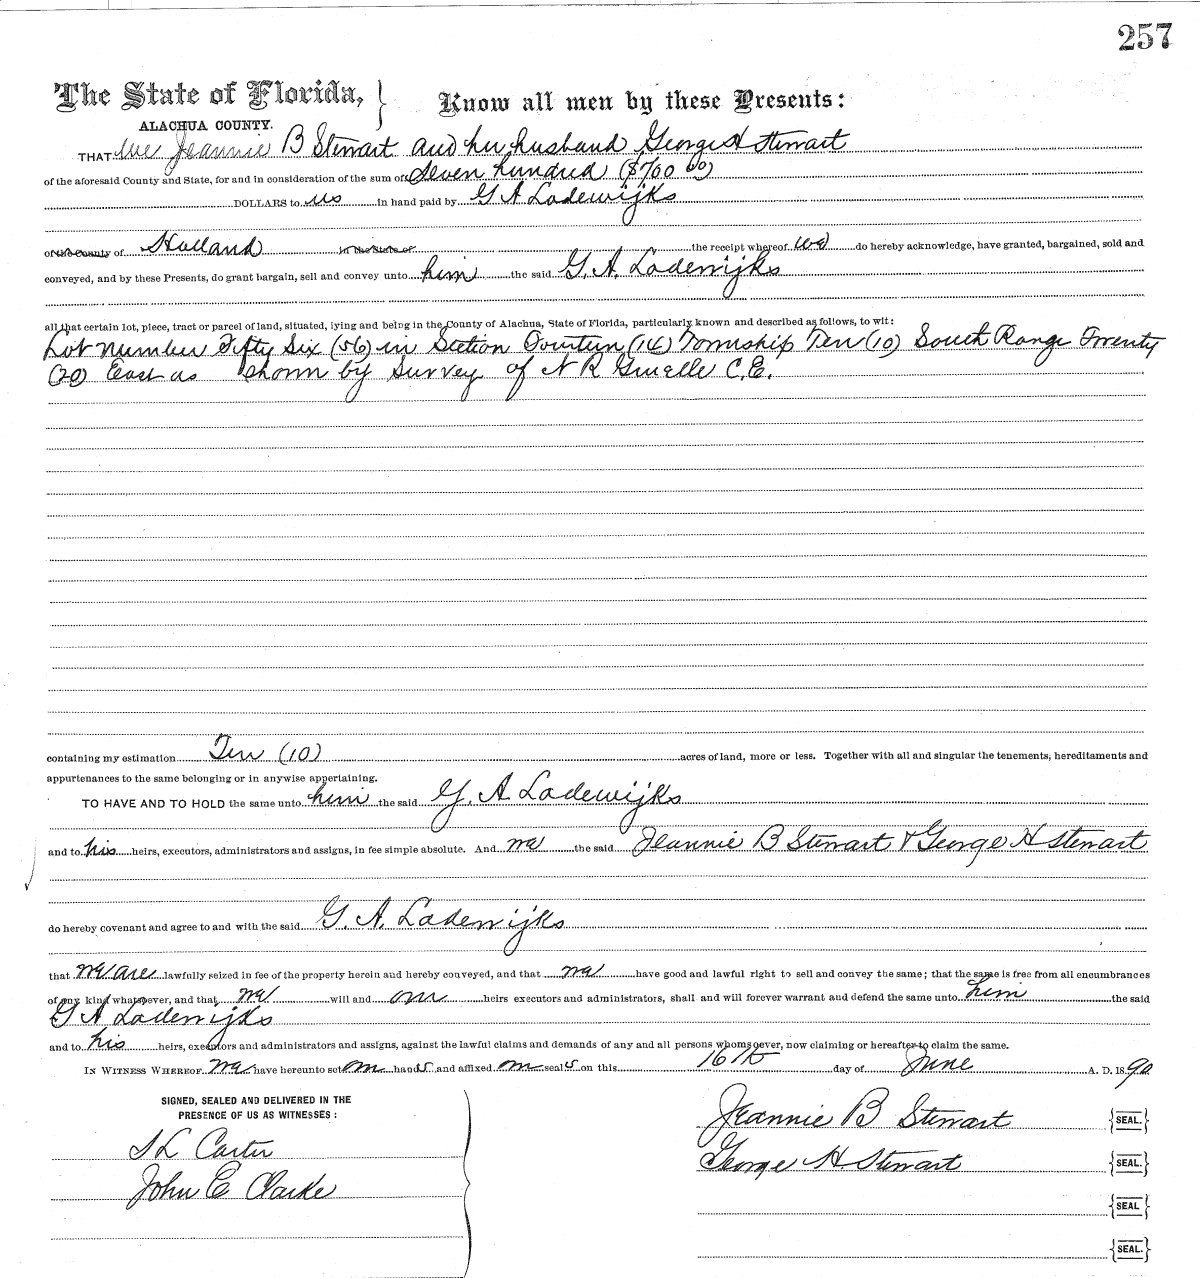 257
The State of Florida, } Know all men by these Presents:
ALACHUA COUNTY.
THAT We Jeannie B Stewart and her husband George H Stewart
of the aforesaid County and State, for and in consideration of the sum of Seven hundred ($700 00)
DOLLARS to us in hand paid by G A Lodewijks
of the County of Holland in the State of the receipt whereof we do hereby acknowledge, have granted, bargained, sold and
conveyed, and by these Presents, do grant bargain, sell and convey unto him the said G. A. Lodewijks
all that certain lot, piece, tract or parcel of land, situated, lying and being in the County of Alachua, State of Florida, particularly known and described as follows, to wit:
Lot Number Fifty Six (56) in Section Fourteen (14) Township Ten (10) South Range Twenty
(20) East as shown by Survey of N R Gruelle C.E.
containing my estimation Ten (10) acres of land, more or less. Together with all and singular the tenements, hereditaments and
appurtenances to the same belonging or in anywise appertaining.
TO HAVE AND TO HOLD the same unto him the said G. A Lodewijks
and to his heirs, executors, administrators and assigns, in fee simple absolute. And we the said Jeannie B Stewart & George H Stewart
do hereby covenant and agree to and with the said G. A. Lodewijks
that we are lawfully seized in fee of the property herein and hereby conveyed, and that we have good and lawful right to sell and convey the same; that the same is free from all encumbrances
of any kind whatsoever, and that we will and our heirs executors and administrators, shall and will forever warrant and defend the same unto him the said
G A Lodewijks
and to his heirs, executors and administrators and assigns, against the lawful claims and demands of any and all persons whomsoever, now claiming or hereafter to claim the same.
IN WITNESS WHEREOF we have hereunto set our hands and affixed our seals on this 16th day of June A. D. 1890
SIGNED, SEALED AND DELIVERED IN THE
PRESENCE OF US AS WITNESSES:
Jeannie B Stewart {SEAL.}
George H Stewart {SEAL.}
S L Carter
John E Clarke
{SEAL}
{SEAL.}